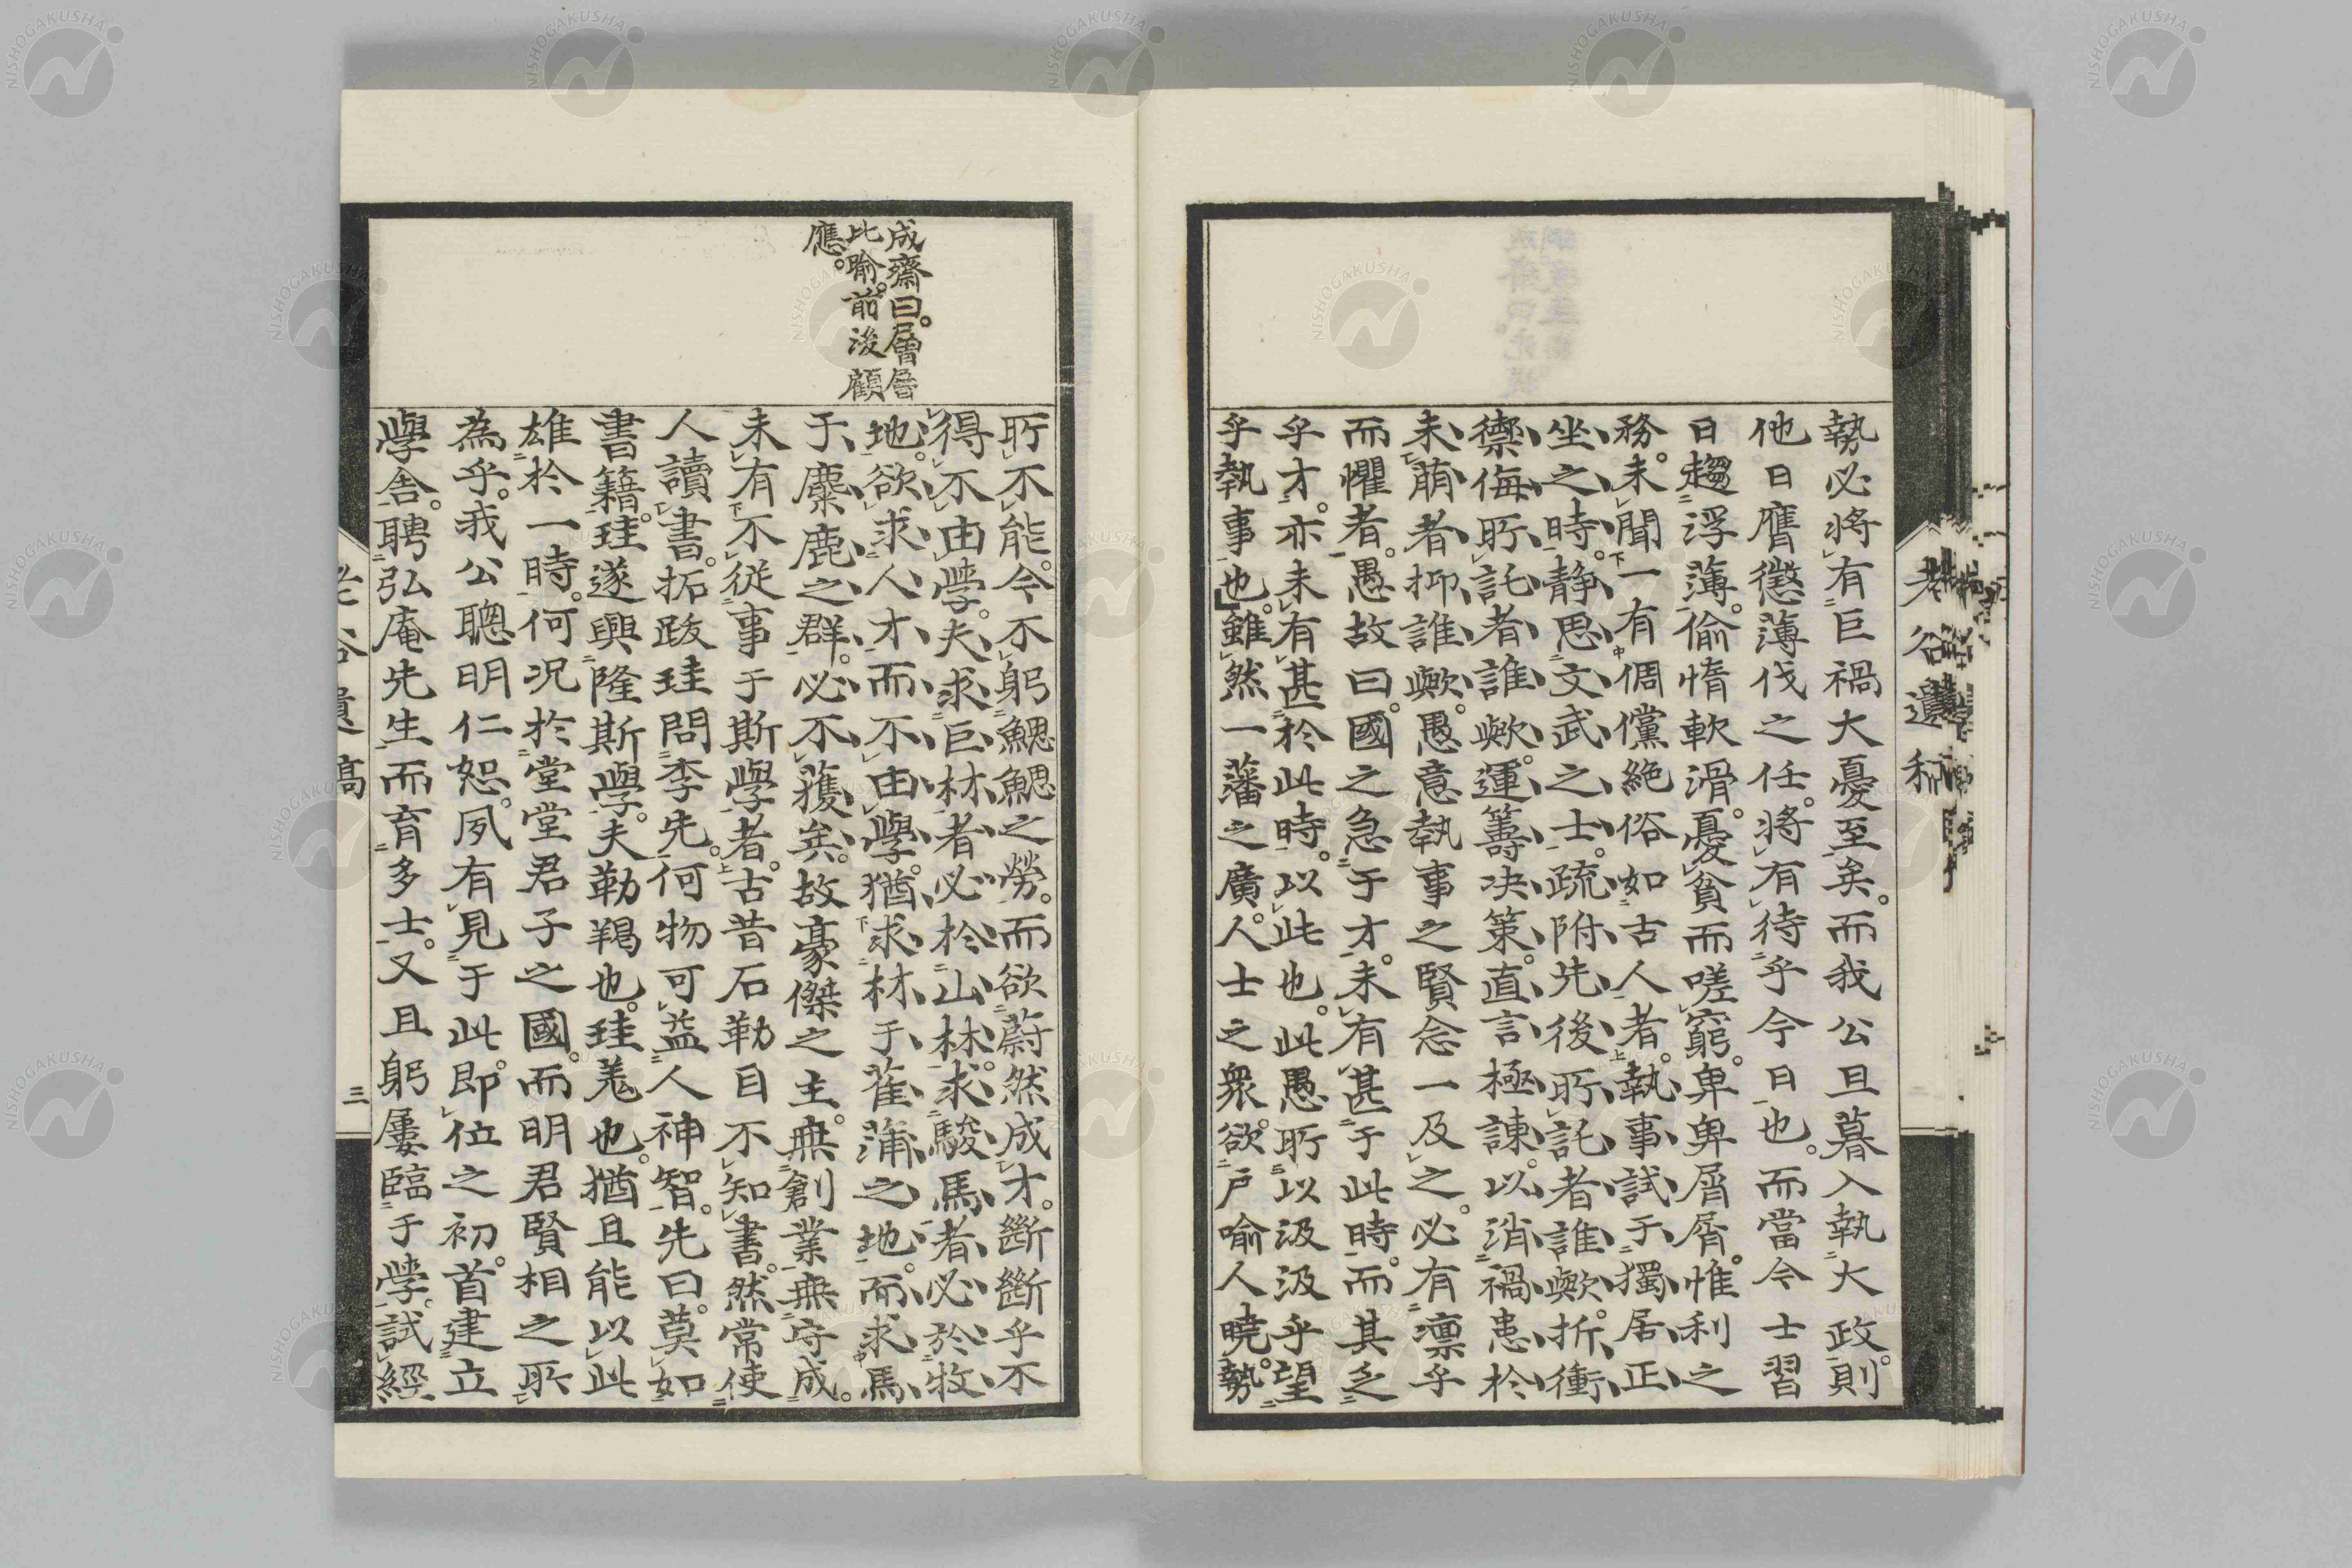 勢必將有巨禍大憂至矣。而我公旦暮入執大政。則
他日膺懲薄伐之任。將有待乎今日也。而當今士習
日趨浮薄。偷惰軟滑。憂貧而嗟窮。卑卑屑屑。惟利之
務。未聞一有倜儻絶俗如古人者。執事試于獨居正
坐之時。靜思文武之士。疏附先後所託者誰歟。折衝
禦侮所託者誰歟。運籌决策。直言極諫。以消禍患於
未萌者抑誰歟。愚意執事之賢念一及之。必有凛乎
而懼者。愚故曰。國之急于才。未有甚于此時。而其乏
乎才。亦未有甚於此時。以此也。此愚所以汲汲乎望
乎執事也。雖然一藩之廣。人士之衆。欲戸喻人曉。勢
老谷遺稿
成齋曰。層層
比喻。前後顧
應。
所不能。今不躬鰓鰓之勞。而欲蔚然成才。斷斷乎不
得不由學。夫求巨材者必於山林。求駿馬者必於牧
地。欲求人才而不由學。猶求材于萑蒲之地。而求馬
于麋鹿之群。必不獲矣。故豪傑之主。無創業無守成。
未有不從事于斯學者。古昔石勒目不知書。然常使
人讀書。拓跋珪問李先。何物可益人神智。先曰。莫如
書籍。珪遂興隆斯學。夫勒羯也。珪羗也。猶且能以此
雄於一時。何況於堂堂君子之國。而明君賢相之所
為乎。我公聰明仁恕。夙有見于此。即位之初。首建立
學舎。聘弘庵先生而育多士。又且躬屢臨于學。試經
老谷遺稿
三